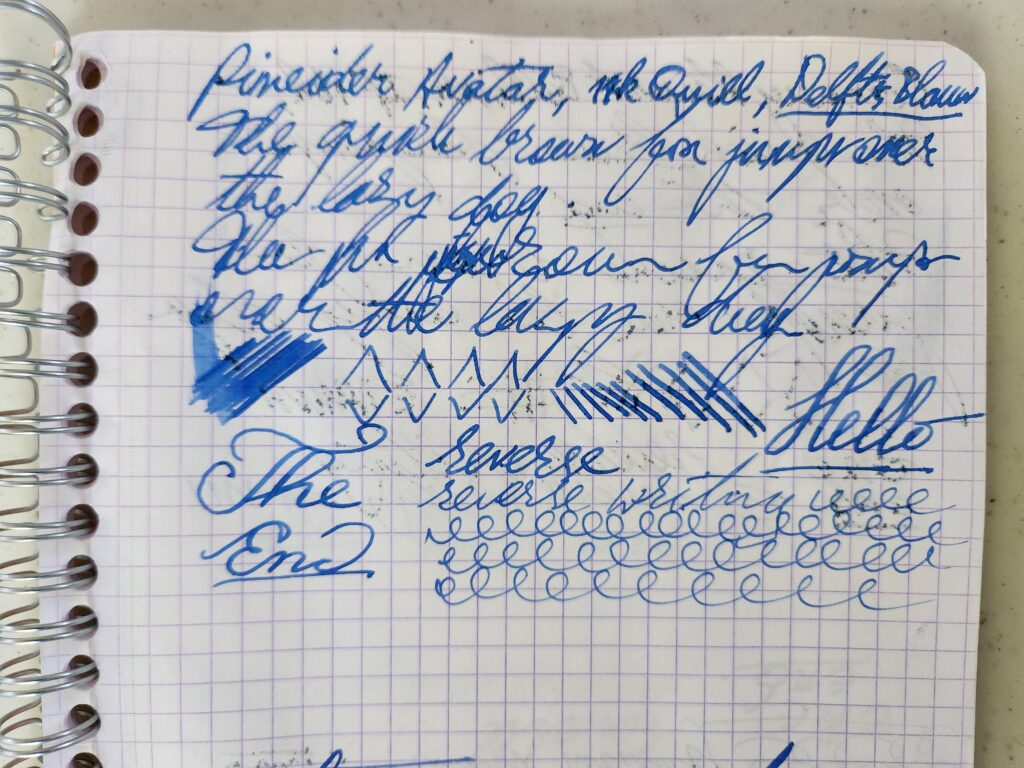 Pineider Avatar, 14k Quill, Delfts Blauw
The quick brown fox jumps over
the lazy dog
The brown fox jumps
over the lazy dog
Hello
The
End
reverse
reverse writing eeee